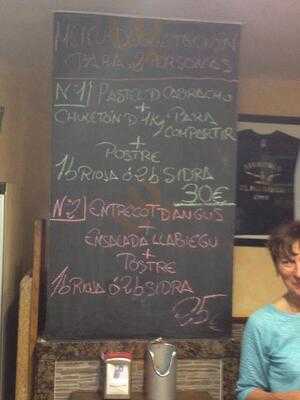 PARA 2 PERSONAS
Nº1 PASTEL D CABRACHO
+
CHULETÓN D 1Kg PARA
COMPARTIR
+
POSTRE
1b RIOJA ó 2b SIDRA
30€
Nº2 ENTRECOT D ANGUS
+
ENSALADA LLABIEGU
+
POSTRE
1b RIOJA ó 2b SIDRA
25€